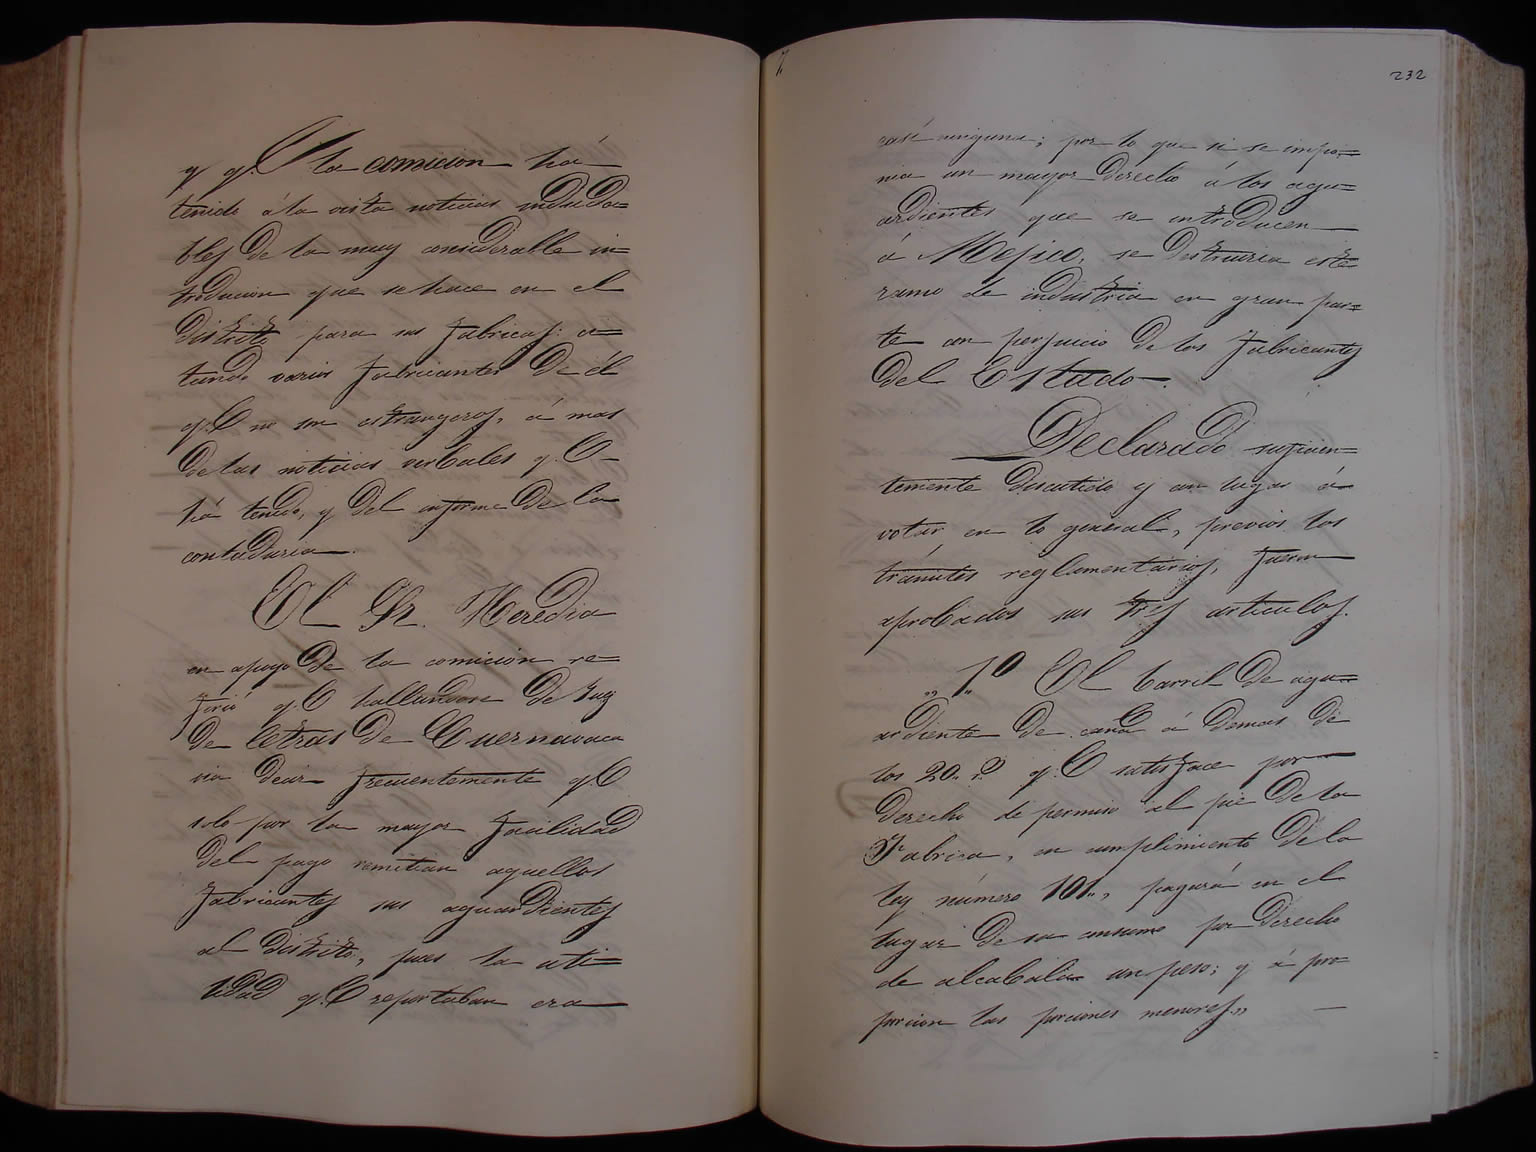 y q.e la comicion há
tenido á la vista noticias induda=
bles de la muy considerable in=
troducion que se hace en el
Distrito para sus fabricas: ci=
tando varios fabricantes de él
q.e no son estrangeros, á mas
de las noticias verbales q.e
há tenido, y del informe de la
contaduria.
El Sr. Heredia
en apoyo de la comicion re=
firió q.e hallandose de Juez
de letras de Cuernavaca
via decir frecuentemente q.e
solo por la mayor facilidad
del pago remitian aquellos
fabricantes sus aguardientes
al Distrito, pues la uti=
lidad q.e reportaban era
232
casi ninguna; por lo que si se impo=
nia un mayor derecho á los agu=
ardientes que se introducen
á Mejico, se destruiria este
ramo de industria en gran par=
te con perjuicio de los fabricantes
del Estado.
Declarado suficien=
temente discutido y con lugar á
votar en lo general, previos los
trámites reglamentarios, fueron
aprobados sus tres articulos.
„1.º El barril de agu=
ardiente de caña á demas de
los 20. r.s q.e satisface por
derecho de permiso al pie de la
Fabrica, en cumplimiento de la
ley número 101., pagará en el
lugar de su consumo por derecho
de alcabala un peso; y á pro=
porcion las porciones menores„